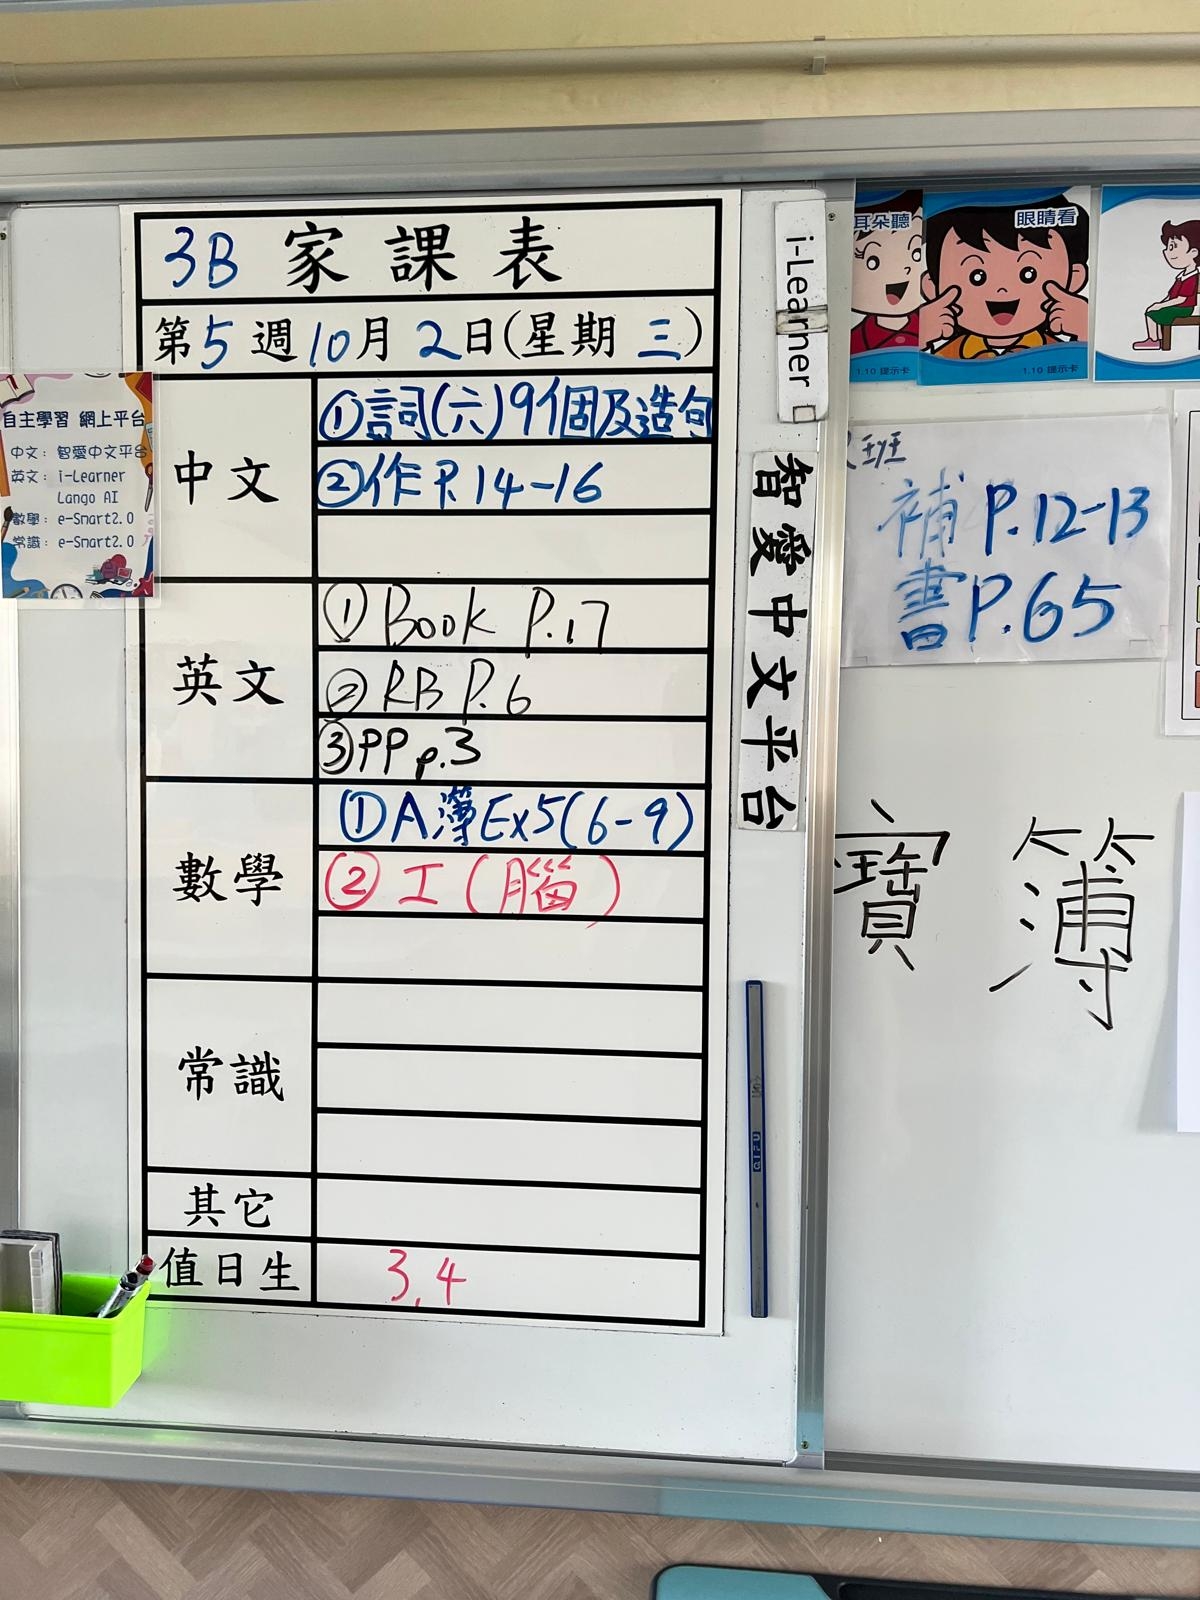 3B 家課表
第5週10月2日(星期三)
中文
①詞(六)9個及造句
②作P.14-16
英文
①Book P.17
②RB P.6
③PP p.3
數學
①A簿Ex5(6-9)
②工(腦)
常識
其它
值日生
3,4
自主學習 網上平台
中文: 智愛中文平台
英文: i-Learner
Lango AI
數學: e-Smart2.0
常識: e-Smart2.0
i-Learner
智愛中文平台
耳朵聽
1.10 提示卡
眼睛看
1.10 提示卡
班
補P.12-13
書P.65
寶簿